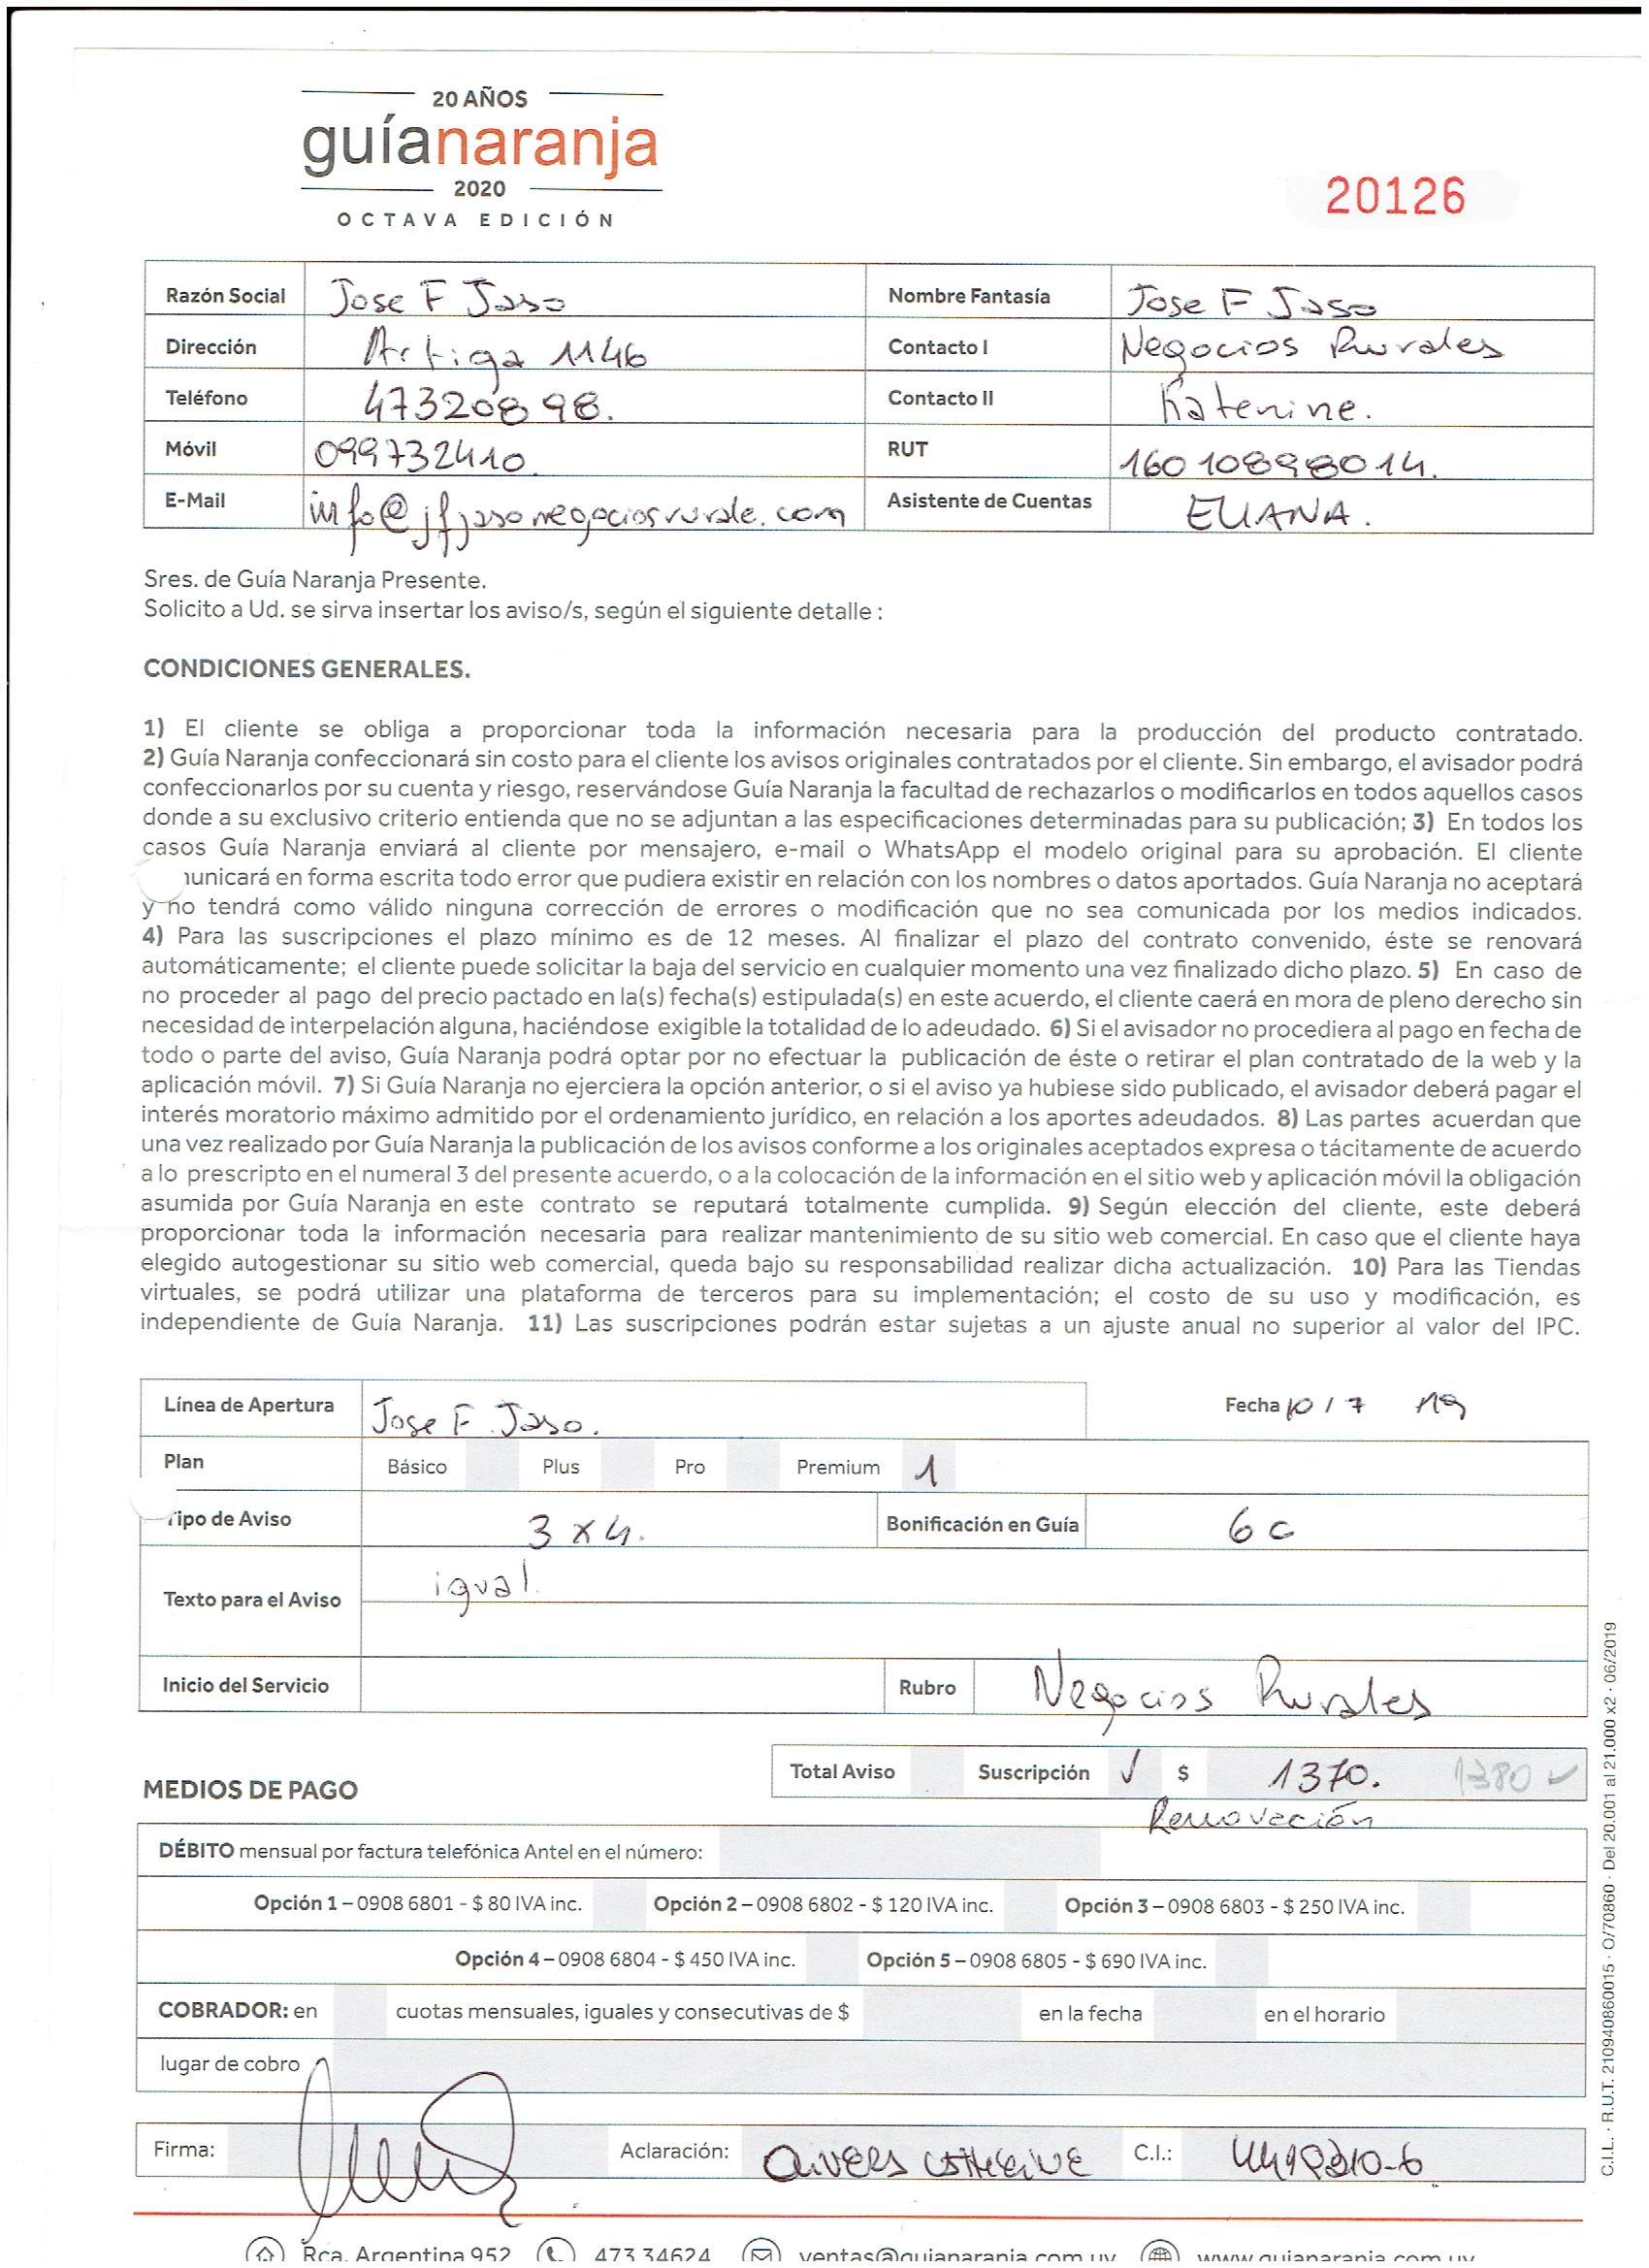 20 AÑOS
guíanaranja
2020
OCTAVA EDICIÓN
20126
Razón Social Jose F Jaso Nombre Fantasía Jose F Jaso
Dirección Artiga 1146 Contacto I Negocios Rurales
Teléfono 47320898. Contacto II Katerine.
Móvil 099732410. RUT 160108980014.
E-Mail info@jfjasonegociosrurale.com Asistente de Cuentas ELIANA.
Sres. de Guía Naranja Presente.
Solicito a Ud. se sirva insertar los aviso/s, según el siguiente detalle :
CONDICIONES GENERALES.
1) El cliente se obliga a proporcionar toda la información necesaria para la producción del producto contratado.
2) Guía Naranja confeccionará sin costo para el cliente los avisos originales contratados por el cliente. Sin embargo, el avisador podrá
confeccionarlos por su cuenta y riesgo, reservándose Guía Naranja la facultad de rechazarlos o modificarlos en todos aquellos casos
donde a su exclusivo criterio entienda que no se adjuntan a las especificaciones determinadas para su publicación; 3) En todos los
casos Guía Naranja enviará al cliente por mensajero, e-mail o WhatsApp el modelo original para su aprobación. El cliente
unicará en forma escrita todo error que pudiera existir en relación con los nombres o datos aportados. Guía Naranja no aceptará
y no tendrá como válido ninguna corrección de errores o modificación que no sea comunicada por los medios indicados.
4) Para las suscripciones el plazo mínimo es de 12 meses. Al finalizar el plazo del contrato convenido, éste se renovará
automáticamente; el cliente puede solicitar la baja del servicio en cualquier momento una vez finalizado dicho plazo. 5) En caso de
no proceder al pago del precio pactado en la(s) fecha(s) estipulada(s) en este acuerdo, el cliente caerá en mora de pleno derecho sin
necesidad de interpelación alguna, haciéndose exigible la totalidad de lo adeudado. 6) Si el avisador no procediera al pago en fecha de
todo o parte del aviso, Guía Naranja podrá optar por no efectuar la publicación de éste o retirar el plan contratado de la web y la
aplicación móvil. 7) Si Guía Naranja no ejerciera la opción anterior, o si el aviso ya hubiese sido publicado, el avisador deberá pagar el
interés moratorio máximo admitido por el ordenamiento jurídico, en relación a los aportes adeudados. 8) Las partes acuerdan que
una vez realizado por Guía Naranja la publicación de los avisos conforme a los originales aceptados expresa o tácitamente de acuerdo
a lo prescripto en el numeral 3 del presente acuerdo, o a la colocación de la información en el sitio web y aplicación móvil la obligación
asumida por Guía Naranja en este contrato se reputará totalmente cumplida. 9) Según elección del cliente, este deberá
proporcionar toda la información necesaria para realizar mantenimiento de su sitio web comercial. En caso que el cliente haya
elegido autogestionar su sitio web comercial, queda bajo su responsabilidad realizar dicha actualización. 10) Para las Tiendas
virtuales, se podrá utilizar una plataforma de terceros para su implementación; el costo de su uso y modificación, es
independiente de Guía Naranja. 11) Las suscripciones podrán estar sujetas a un ajuste anual no superior al valor del IPC.
Línea de Apertura Jose F. Jaso. Fecha 10 / 7 119
Plan Básico Plus Pro Premium 1
Tipo de Aviso 3 x 4. Bonificación en Guía 6 c
Texto para el Aviso igual.
Inicio del Servicio Rubro Negocios Rurales
Total Aviso Suscripción ✓ $ 1370. 1380 ✓
MEDIOS DE PAGO
Renovación
DÉBITO mensual por factura telefónica Antel en el número:
Opción 1 – 0908 6801 - $ 80 IVA inc. Opción 2 – 0908 6802 - $ 120 IVA inc. Opción 3 – 0908 6803 - $ 250 IVA inc.
Opción 4 – 0908 6804 - $ 450 IVA inc. Opción 5 – 0908 6805 - $ 690 IVA inc.
COBRADOR: en cuotas mensuales, iguales y consecutivas de $ en la fecha en el horario
lugar de cobro
Firma: Aclaración: C.I.:
Rca. Argentina 952 473 34624 ventas@guianaranja.com.uy www.guianaranja.com.uy
C.I.L. · R.U.T. 210940860015 · O/70860 · Del 20.001 al 21.000 x2 · 06/2019